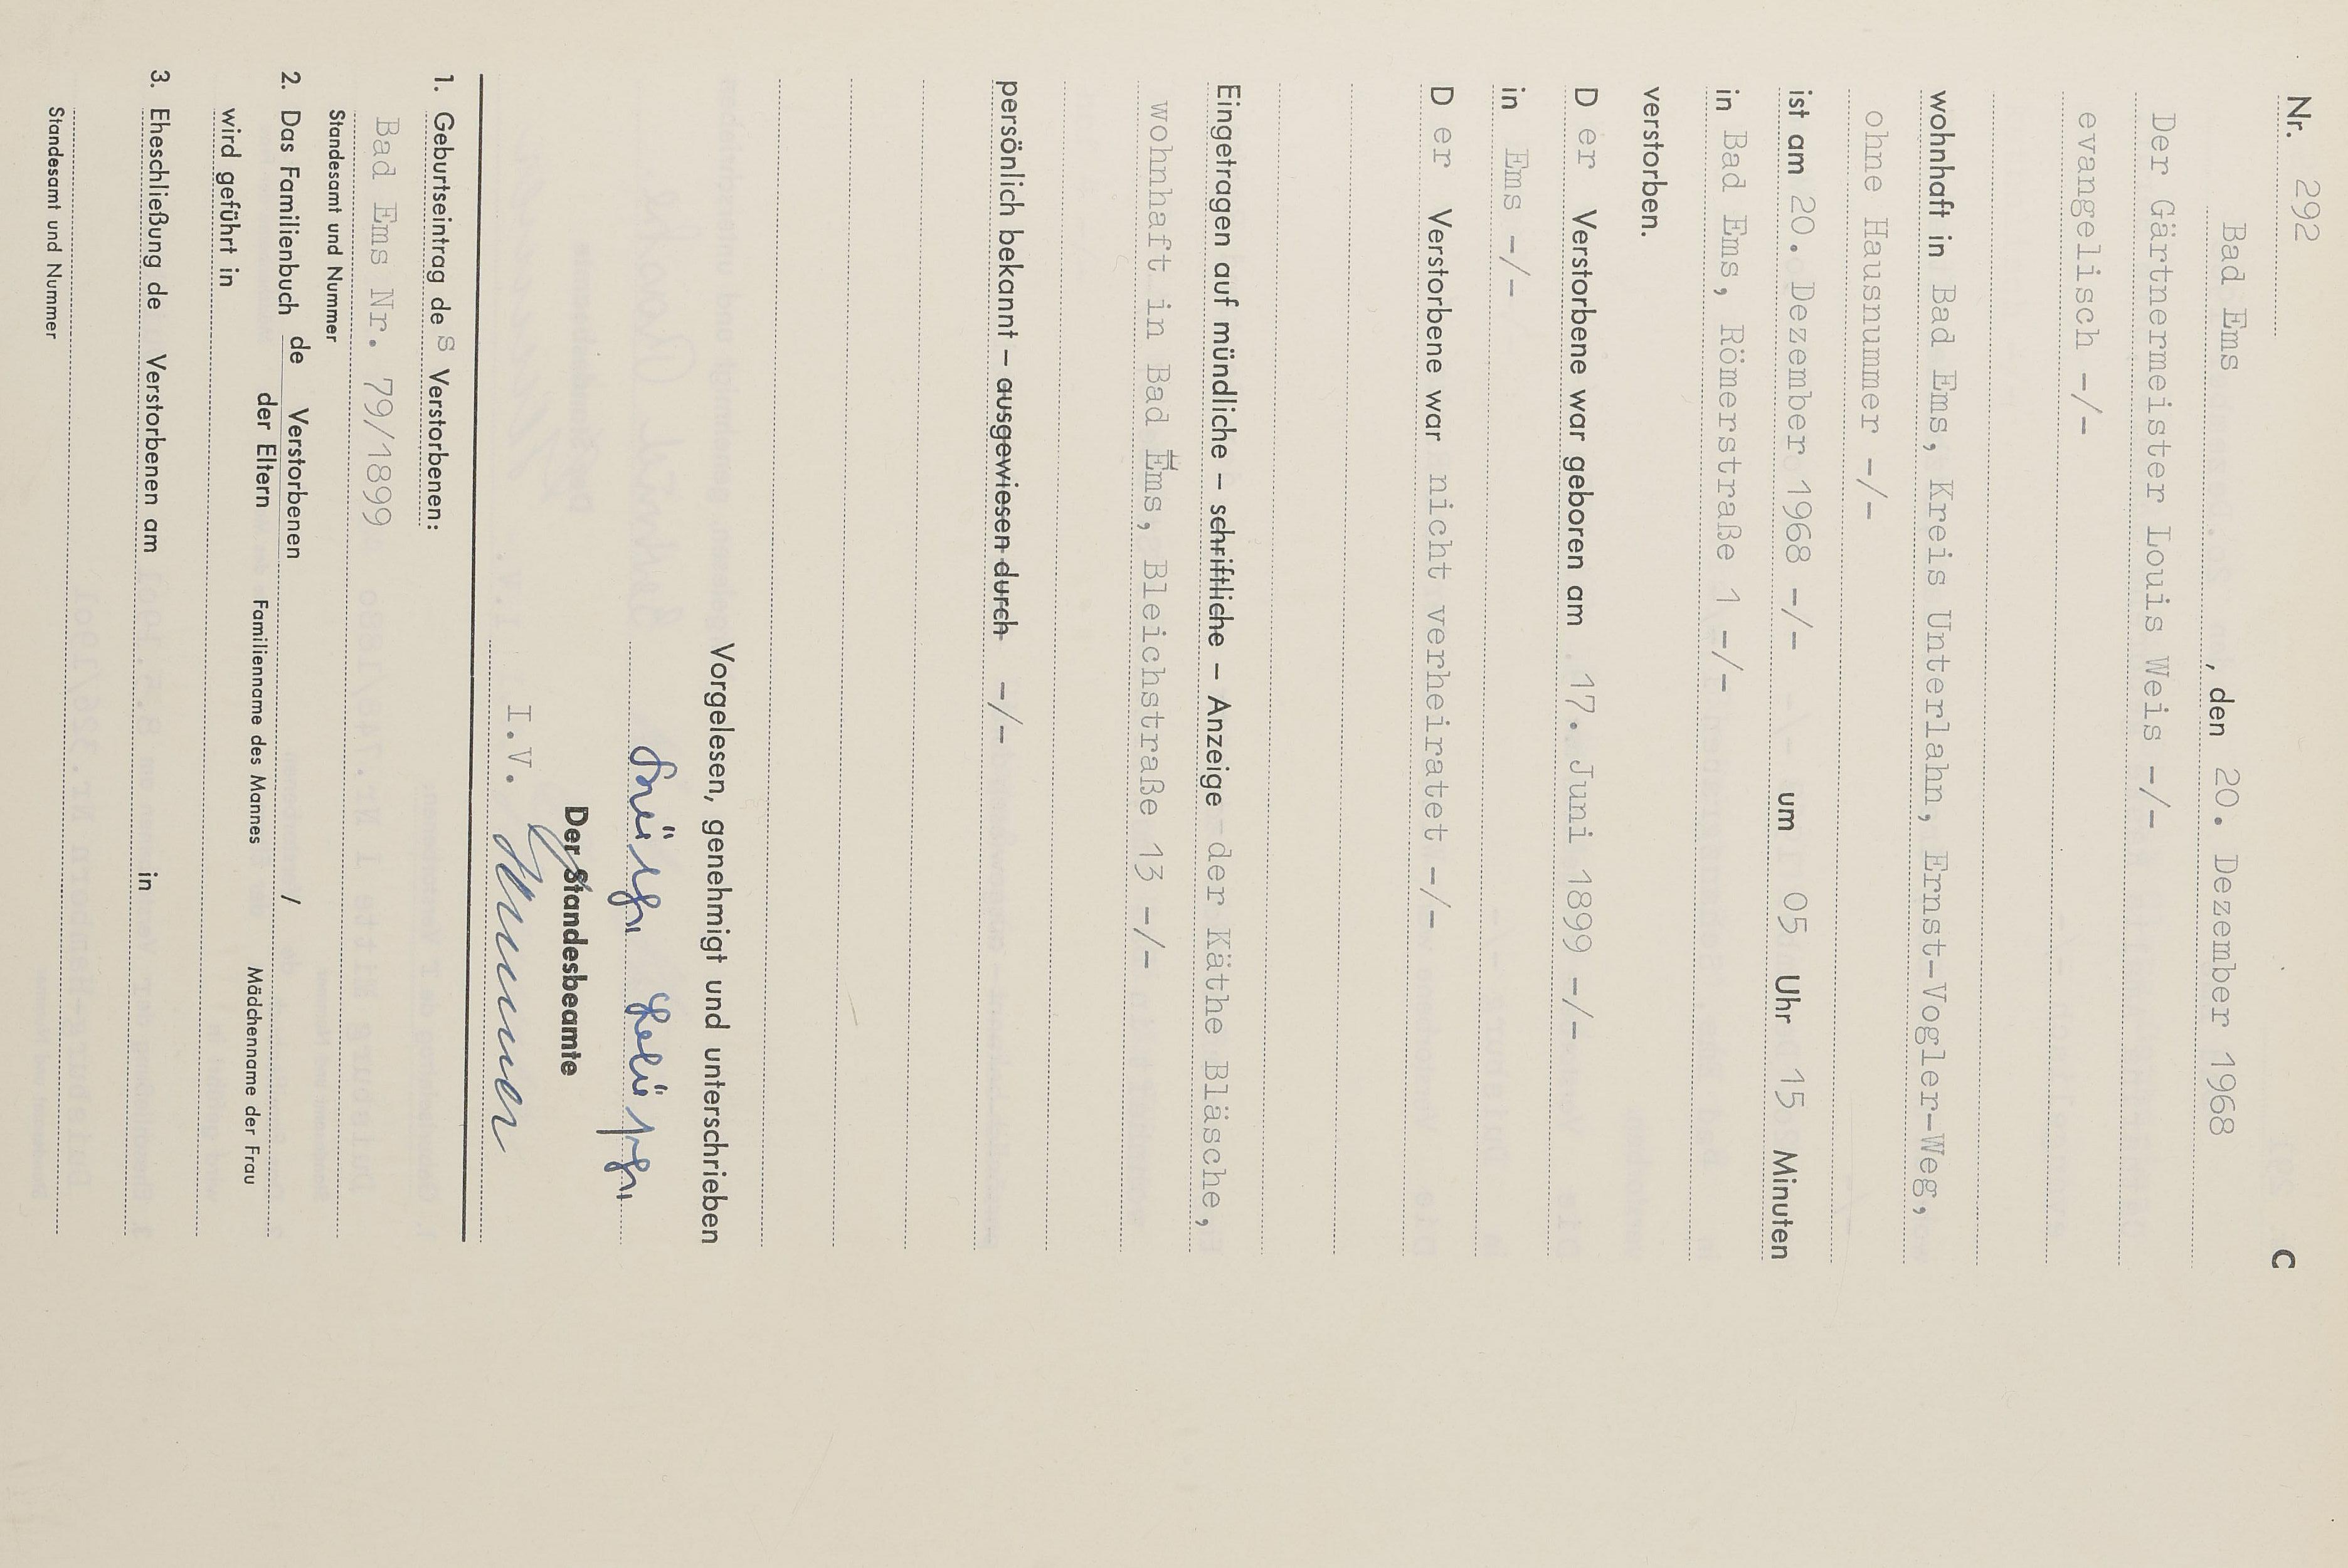 Nr. 292 C
Bad Ems , den 20. Dezember 1968
Der Gärtnermeister Louis Weis -/-
evangelisch -/-
wohnhaft in Bad Ems, Kreis Unterlahn, Ernst-Vogler-Weg,
ohne Hausnummer -/-
ist am 20. Dezember 1968 -/- um 05 Uhr 15 Minuten
in Bad Ems, Römerstraße 1 -/-
verstorben.
D er Verstorbene war geboren am 17. Juni 1899 -/-
in Ems -/-
D er Verstorbene war nicht verheiratet -/-
Eingetragen auf mündliche – schriftliche – Anzeige der Käthe Bläsche,
wohnhaft in Bad Ems, Bleichstraße 13 -/-
persönlich bekannt – ausgewiesen durch -/-
Vorgelesen, genehmigt und unterschrieben
Der Standesbeamte
I.V.
1. Geburtseintrag de s Verstorbenen:
Bad Ems Nr. 79/1899
Standesamt und Nummer
2. Das Familienbuch de Verstorbenen /
der Eltern Familienname des Mannes Mädchenname der Frau
wird geführt in
3. Eheschließung de Verstorbenen am in
Standesamt und Nummer